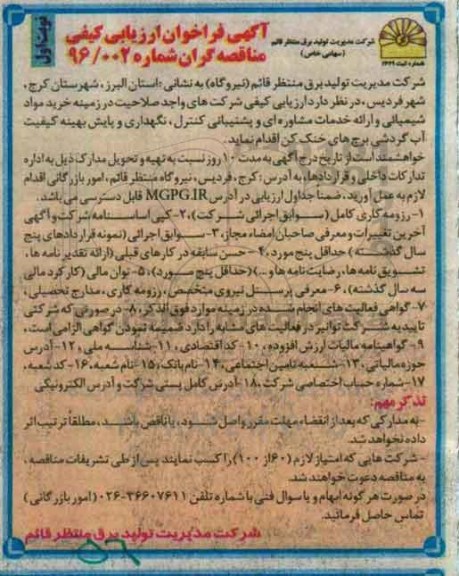 نوبت اول
آگهی فراخوان ارزیابی کیفی
مناقصه گران شماره ۹۶/۰۰۲
شرکت مدیریت تولید برق منتظر قائم
(سهامی خاص)
شماره ثبت ۱۴۲۹
شرکت مدیریت تولید برق منتظر قائم (نیروگاه) به نشانی: استان البرز، شهرستان کرج،
شهر فردیس، در نظر دارد ارزیابی کیفی شرکت های واجد صلاحیت در زمینه خرید مواد
شیمیائی و ارائه خدمات مشاوره ای و پشتیبانی کنترل، نگهداری و پایش بهینه کیفیت
آب گردشی برج های خنک کن اقدام نماید.
خواهشمند است از تاریخ درج آگهی به مدت ۱۰ روز نسبت به تهیه و تحویل مدارک ذیل به اداره
تدارکات داخلی و قراردادها، به آدرس: کرج، فردیس، نیروگاه منتظر قائم، امور بازرگانی اقدام
لازم به عمل آورید. ضمنا جداول ارزیابی در آدرس MGPG.IR قابل دسترسی می باشد.
۱- رزومه کاری کامل (سوابق اجرائی شرکت)، ۲- کپی اساسنامه شرکت و آگهی
آخرین تغییرات و معرفی صاحبان امضاء مجاز، ۳- سوابق اجرائی (نمونه قراردادهای پنج
سال گذشته) حداقل پنج مورد، ۴- حسن سابقه در کارهای قبلی (ارائه تقدیر نامه ها،
تشویق نامه ها، رضایت نامه ها و ...) (حداقل پنج مورد)، ۵- توان مالی (کارکرد مالی
سه سال گذشته)، ۶- معرفی پرسنل نیروی متخصص، رزومه کاری، مدارج تحصیلی،
۷- گواهی فعالیت های انجام شده در زمینه موارد فوق الذکر، ۸- در صورتی که شرکتی
تاییدیه شرکت توانیر در فعالیت های مشابه را دارد ضمیمه نمودن گواهی الزامی است،
۹- گواهینامه مالیات ارزش افزوده، ۱۰- کد اقتصادی، ۱۱- شناسه ملی، ۱۲- آدرس
حوزه مالیاتی، ۱۳- شعبه تامین اجتماعی، ۱۴- نام بانک، ۱۵- نام شعبه، ۱۶- کد شعبه،
۱۷- شماره حساب اختصاصی شرکت، ۱۸- آدرس کامل پستی شرکت و آدرس الکترونیکی
تذکر مهم:
- به مدارکی که بعد از انقضاء مهلت مقرر واصل شود، یا ناقص باشد، مطلقا ترتیب اثر
داده نخواهد شد.
- شرکت هایی که امتیاز لازم (۶۰ از ۱۰۰) را کسب نمایند پس از طی تشریفات مناقصه،
به مناقصه دعوت خواهند شد.
در صورت هر گونه ابهام و یا سوال فنی با شماره تلفن ۳۶۶۰۷۶۱۱-۰۲۶ (امور بازرگانی)
تماس حاصل فرمائید.
شرکت مدیریت تولید برق منتظر قائم